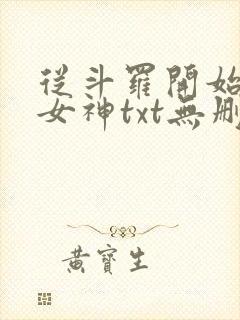 從斗羅開始
女神txt無刪
黃寶生